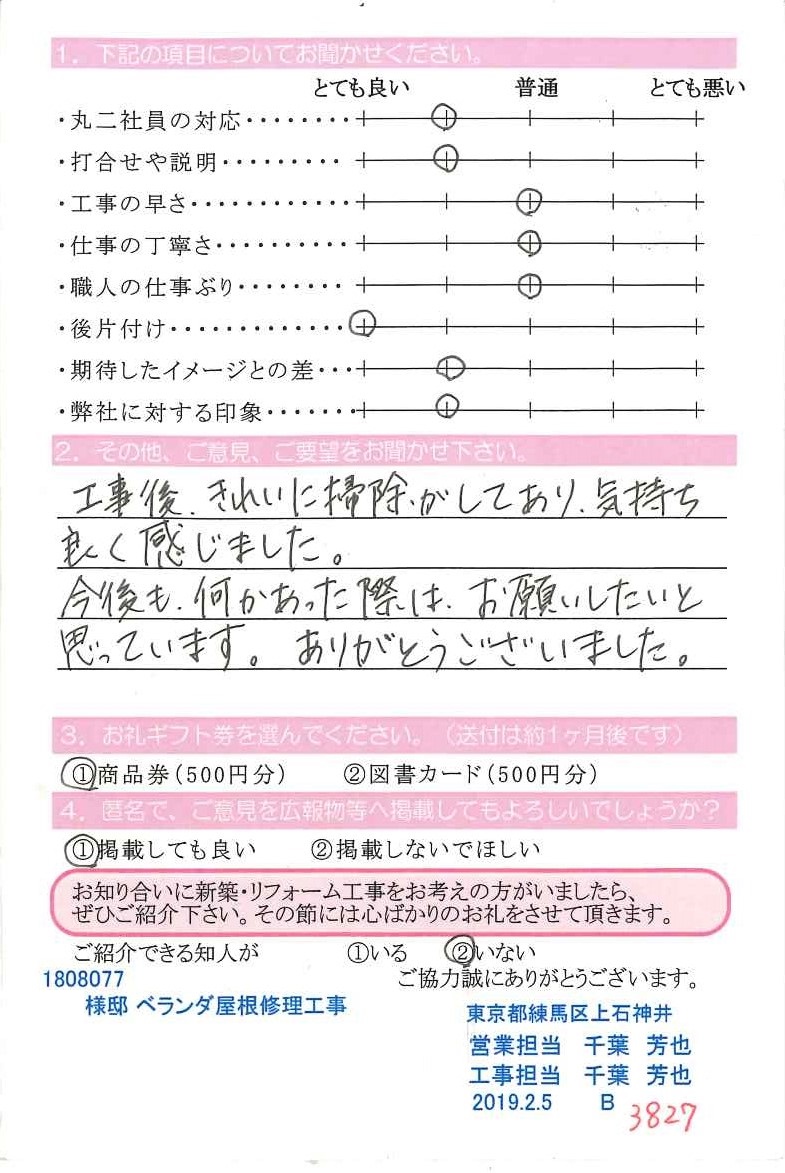 1. 下記の項目についてお聞かせください。
とても良い 普通 とても悪い
・丸二社員の対応・・・・・・・・
・打合せや説明・・・・・・・・・
・工事の早さ・・・・・・・・・・・・
・仕事の丁寧さ・・・・・・・・・・
・職人の仕事ぶり・・・・・・・・
・後片付け・・・・・・・・・・・・・
・期待したイメージとの差・・・
・弊社に対する印象・・・・・・・
2. その他、ご意見、ご要望をお聞かせ下さい。
工事後、きれいに掃除がしてあり、気持ち
良く感じました。
今後も、何かあった際は、お願いしたいと
思っています。 ありがとうございました。
3. お礼ギフト券を選んでください。（送付は約1ヶ月後です）
①商品券(500円分) ②図書カード(500円分)
4. 匿名で、ご意見を広報物等へ掲載してもよろしいでしょうか？
①掲載しても良い ②掲載しないでほしい
お知り合いに新築・リフォーム工事をお考えの方がいましたら、
ぜひご紹介下さい。その節には心ばかりのお礼をさせて頂きます。
ご紹介できる知人が ①いる ②いない
1808077 ご協力誠にありがとうございます。
様邸 ベランダ屋根修理工事
東京都練馬区上石神井
営業担当 千葉 芳也
工事担当 千葉 芳也
2019.2.5 B 3827